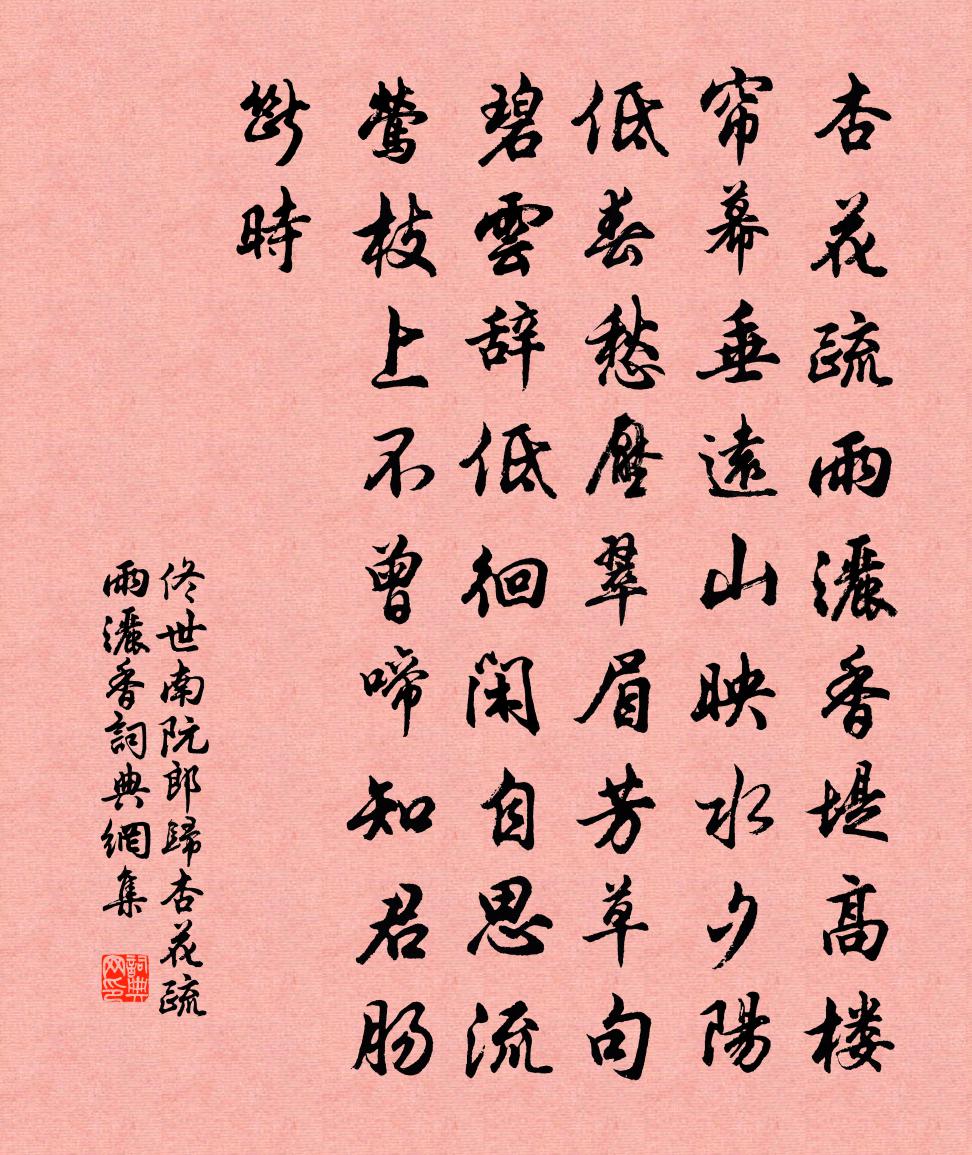 杏花疏雨灑香堤高楼
帘幕垂遠山映水夕陽
低春愁壓翠眉芳草句
碧雲辞低徊閑自思流
鶯枝上不曾啼知君肠
斷時
佟世南阮郎歸杏花疏
雨灑香詞典網集
詞典网印